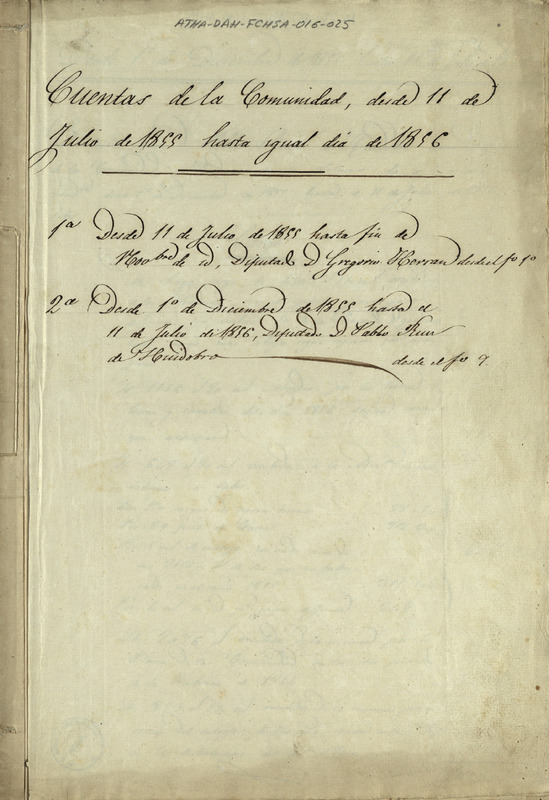 ATHA-DAH-FCHSA-016-025
Cuentas de la Comunidad, desde 11 de
Julio de 1855 hasta igual dia de 1856
1ª Desde 11 de Julio de 1855 hasta fin de
Novbre de id, Diputado D Gregorio Herran desde el fo 1º
2ª Desde 1º de Diciembre de 1855 hasta el
11 de Julio de 1856, Diputado D Pablo Ruiz
de Huidobro desde el fo 9